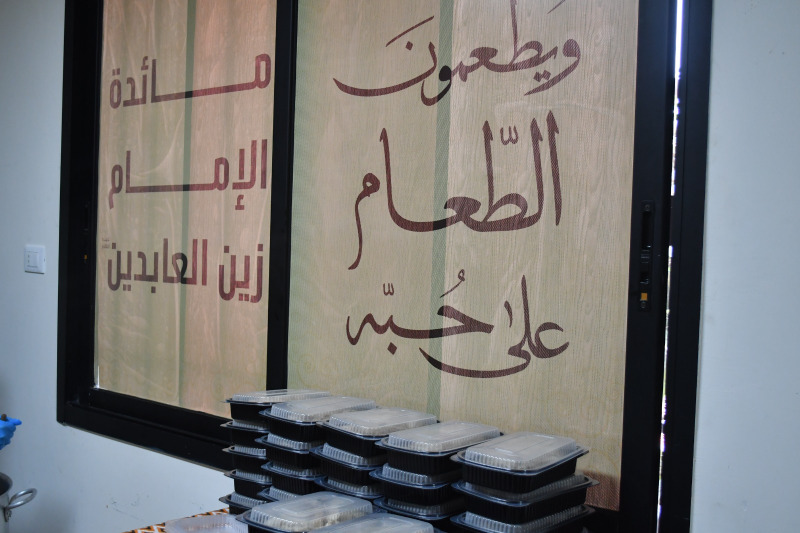 ويطعمونَ
الطّعام
على حُبّه
مائدة
الإمام
زين العابدين